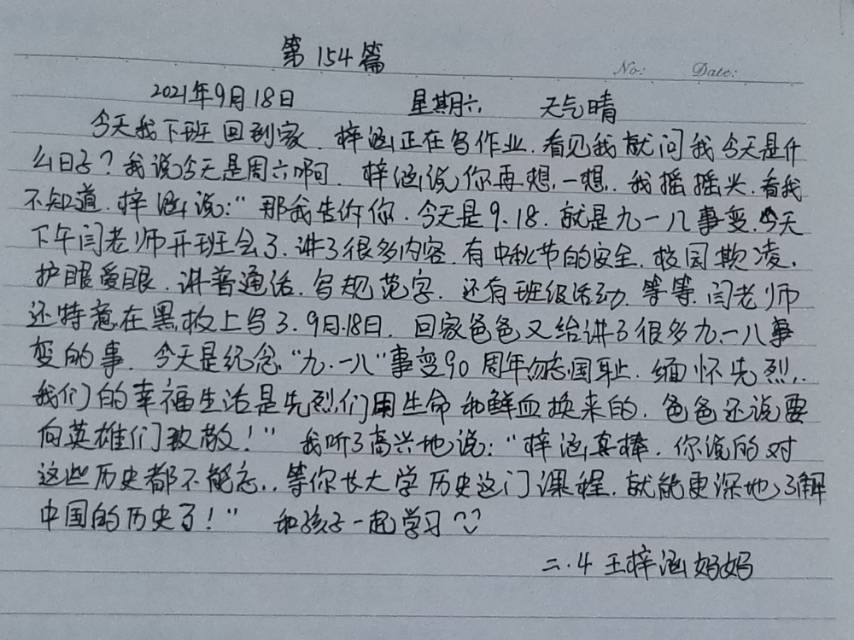 第154篇
No: Date:
2021年9月18日 星期六 天气晴
今天我下班回到家.梓涵正在写作业.看见我就问我今天是什
么日子?我说今天是周六啊.梓涵说你再想.一想.我摇摇头.看我
不知道.梓涵说:"那我告诉你.今天是9.18.就是九一八事变.今天
下午闫老师开班会了.讲了很多内容.有中秋节的安全.校园欺凌.
护眼爱眼.讲普通话.写规范字.还有班级活动.等等.闫老师
还特意在黑板上写了.9月.18日.回家爸爸又给讲了很多九.一八事
变的事.今天是纪念"九.一八"事变90周年勿忘国耻.缅怀先烈..
我们的幸福生活是先烈们用生命和鲜血换来的.爸爸还说要
向英雄们致敬!"我听了高兴地说:"梓涵真棒.你说的对
这些历史都不能忘..等你长大学历史这门课程.就能更深地了解
中国的历史了!"和孩子一起学习
二.4 王梓涵妈妈